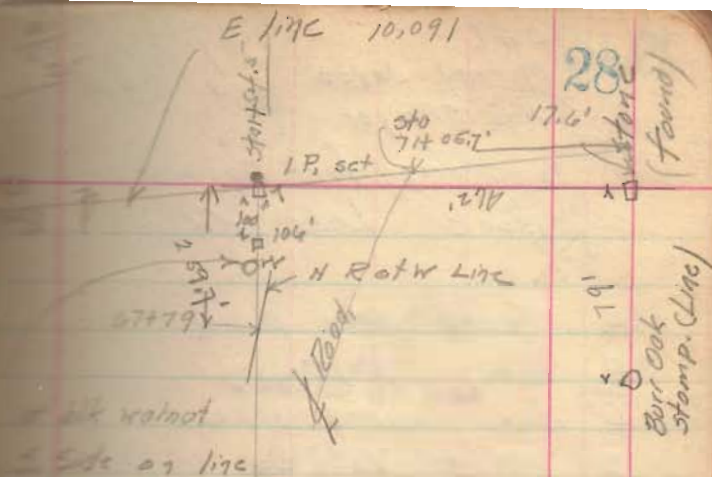 E line 10,091
28
Sto
71+05.7'
17.6'
Stone
(found)
I.P. set
106'
259.7'
N R of W Line
67+79
℄ Road
79'
Burr Oak
Stomp. (Line)
Blk walnot
Side on line